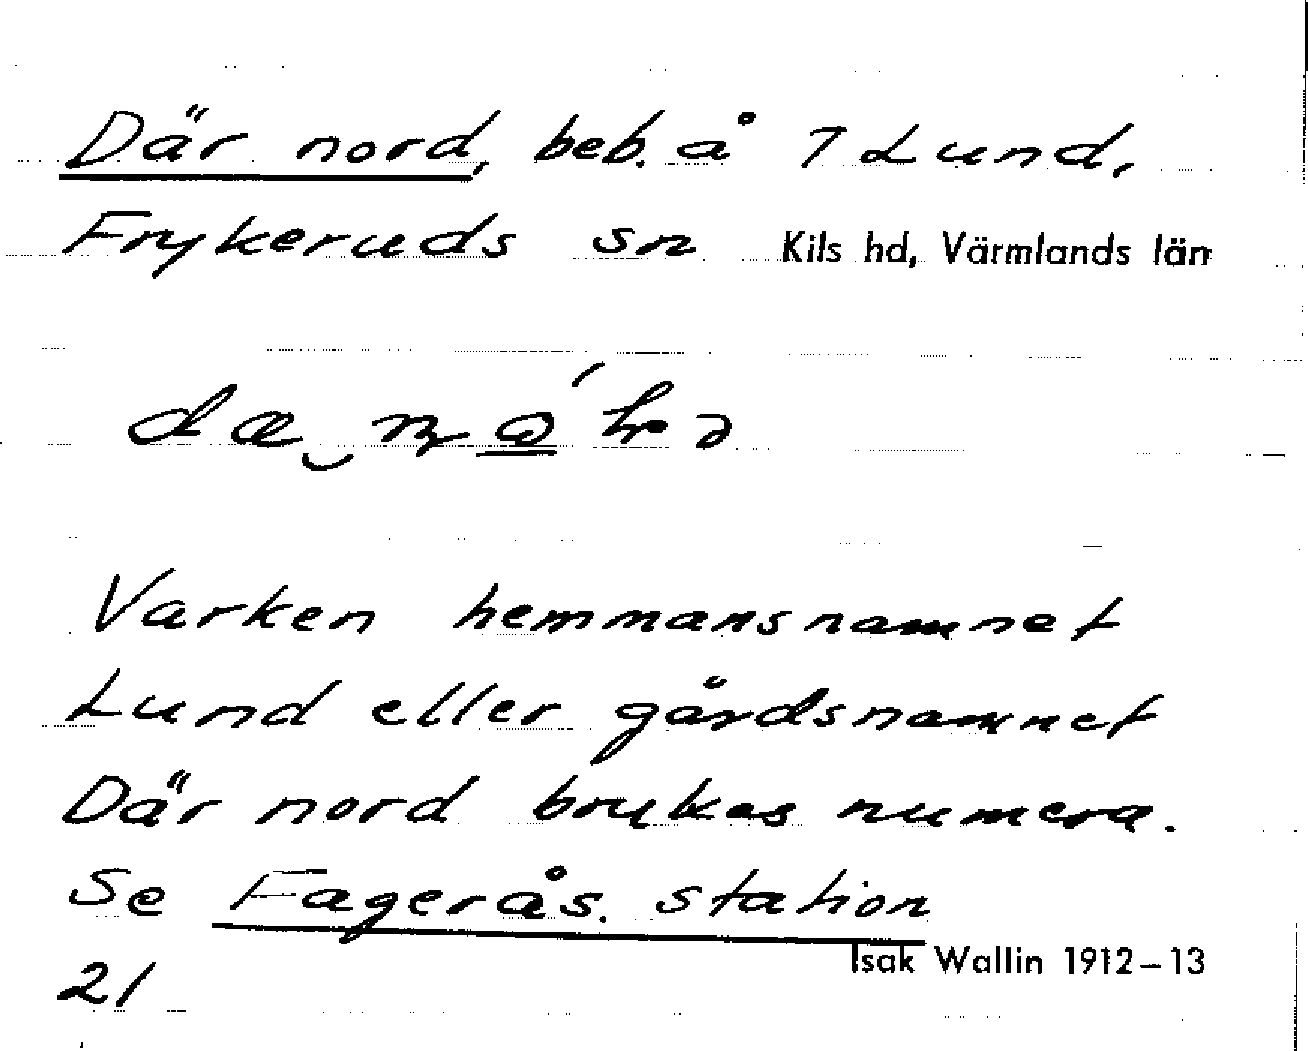 Där nord, beb. å 7 Lund,
Frykeruds sn Kils hd, Värmlands län
Varken hemmansnamnet
Lund eller gårdsnamnet
Där nord brukas numera.
Se Fagerås. station
Isak Wallin 1912–13
21